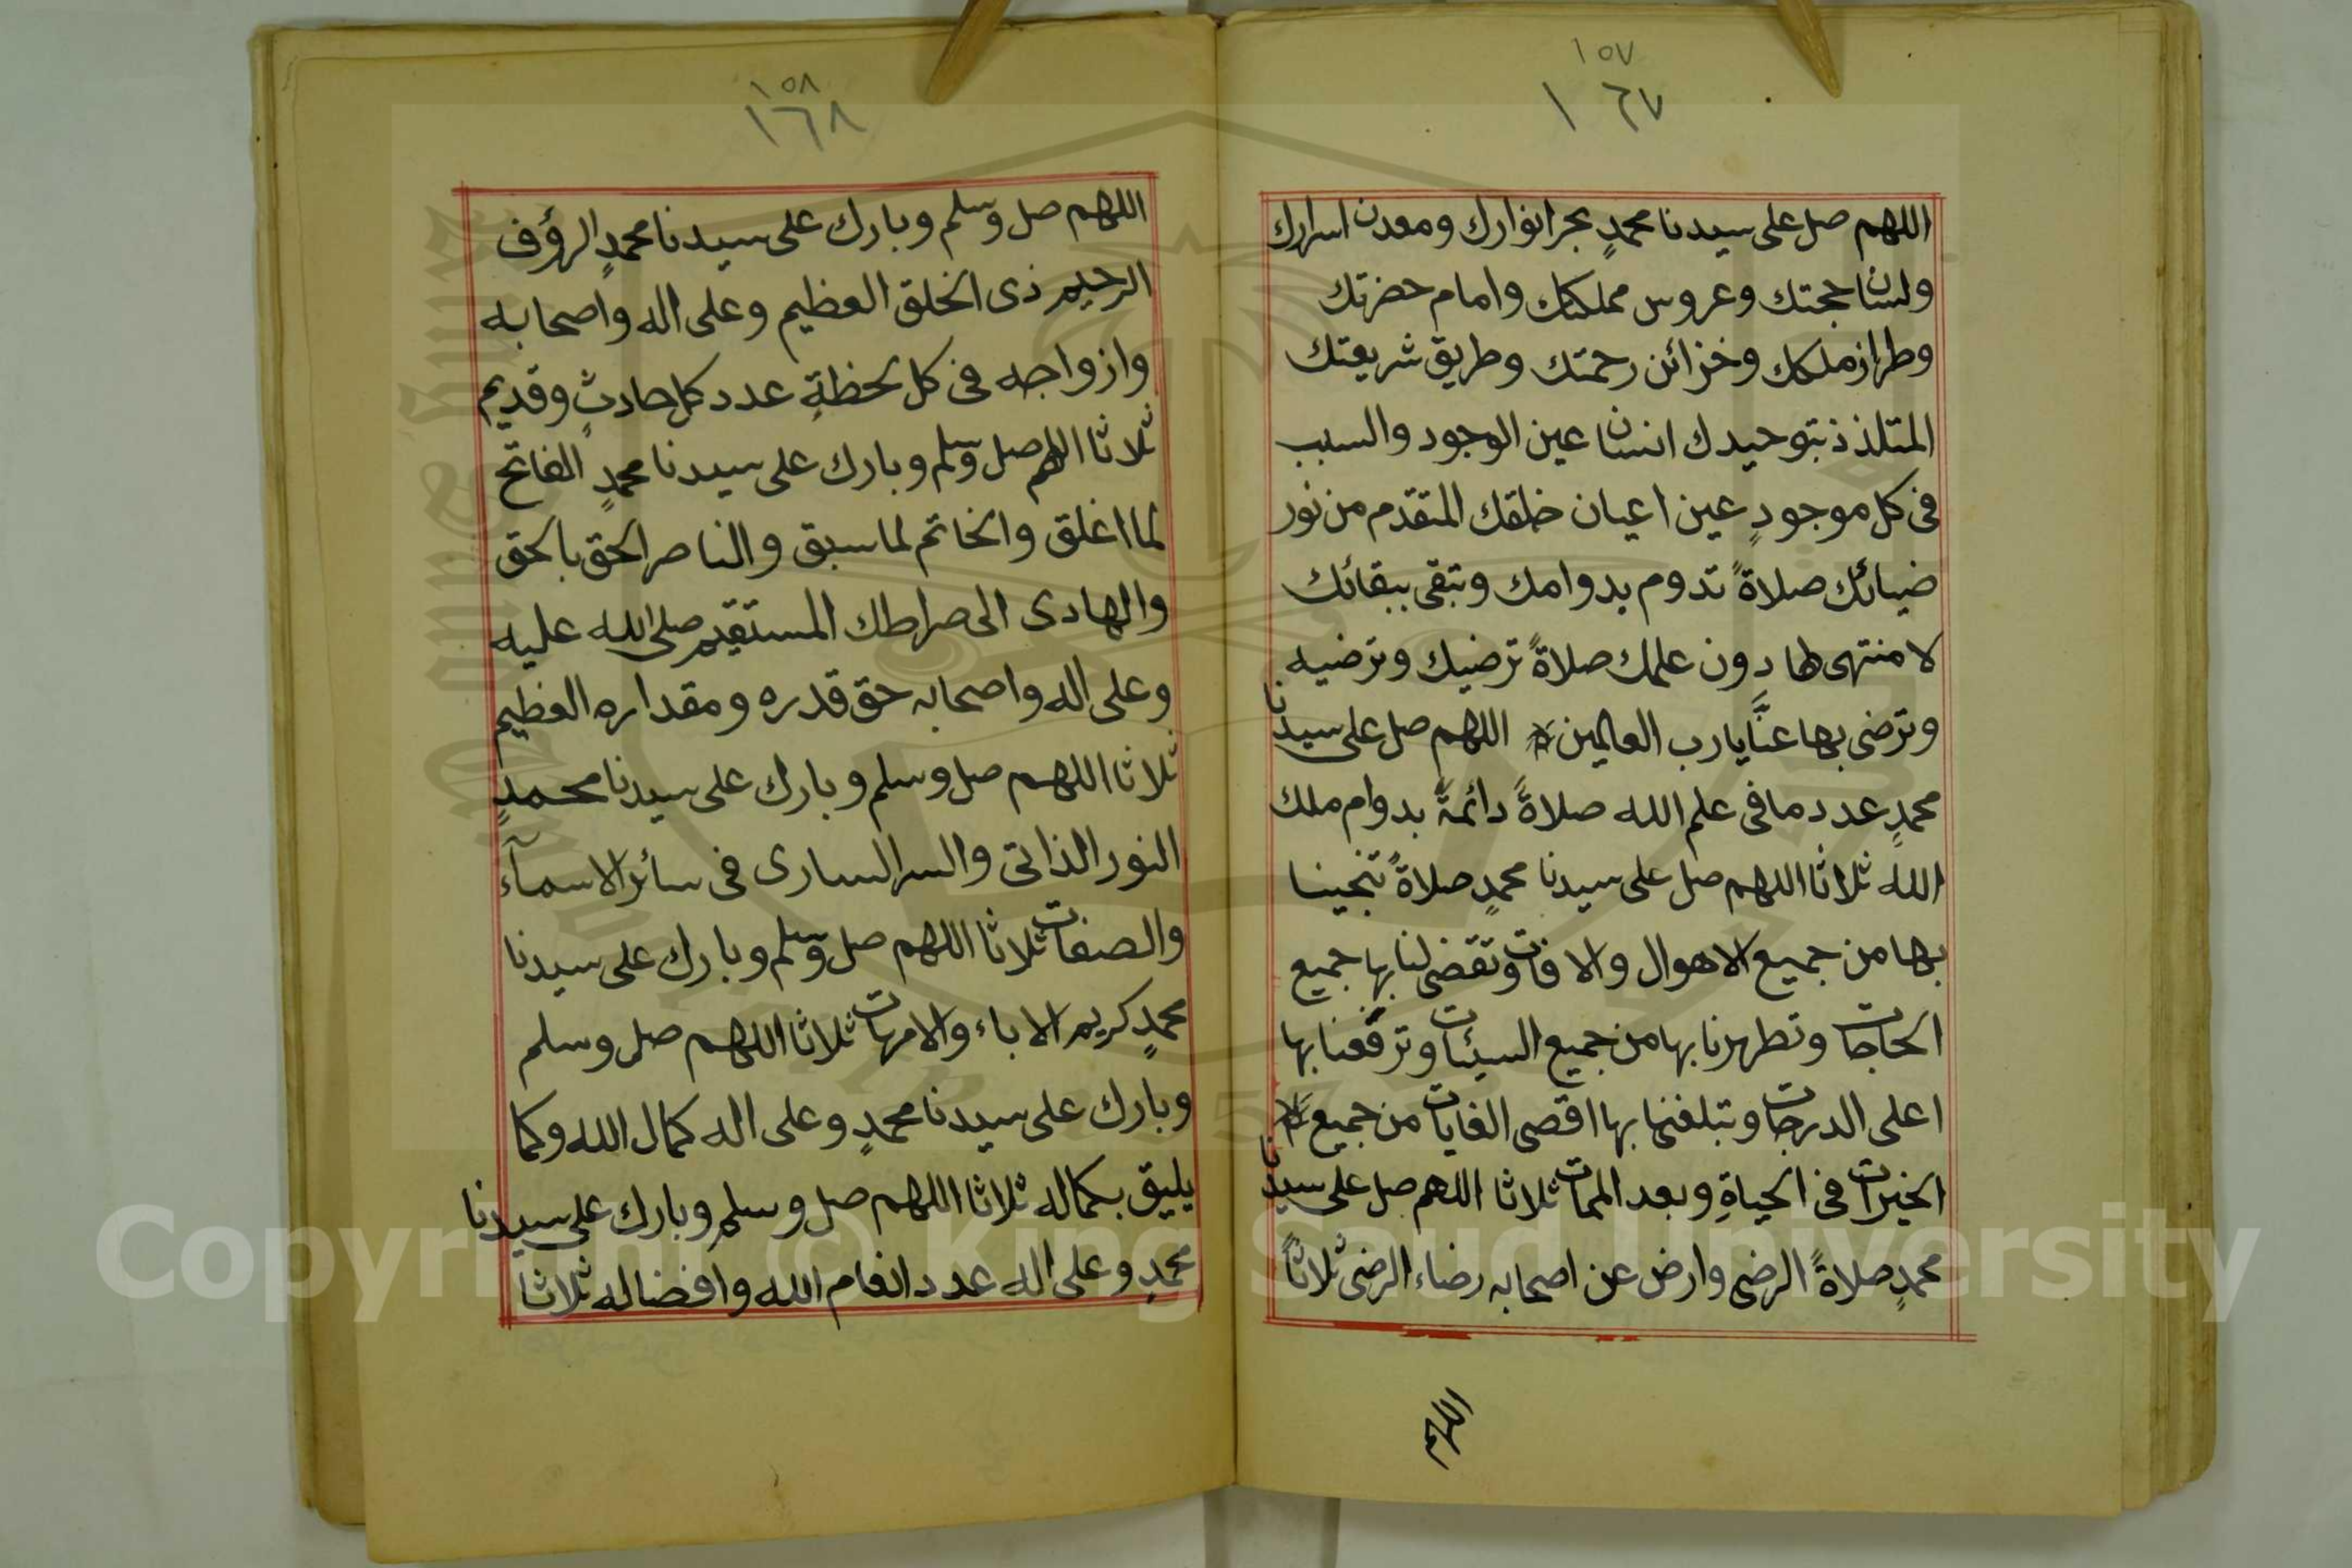 ١٥٧
١٦٧
اللهم صل على سيدنا محمدٍ بحر انوارك ومعدن اسرارك
ولسان حجتك وعروس مملكتك وامام حضرتك
وطراز ملكك وخزائن رحمتك وطريق شريعتك
المتلذذ بتوحيدك انسان عين الوجود والسبب
فى كل موجودٍ عين اعيان خلقك المتقدم من نور
ضيائك صلاةً تدوم بدوامك وتبقى ببقائك
لا منتهى لها دون علمك صلاةً ترضيك وترضيه
وترضى بها عنَّا يارب العالمين اللهم صل على سيدنا
محمدٍ عدد ما فى علم الله صلاةً دائمةً بدوام ملك
الله ثلاثا اللهم صل على سيدنا محمدٍ صلاةً تنجينا
بها من جميع الاهوال والافات وتقضى لنا بها جميع
الحاجات وتطهرنا بها من جميع السيئات وترفعنا بها
اعلى الدرجات وتبلغنا بها اقصى الغايات من جميع
الخيرات فى الحياةِ وبعد الممات ثلاثا اللهم صل على سيدنا
محمدٍ صلاةً الرضى وارض عن اصحابه رضاء الرضى ثلاثاً
اللهم
١٥٨
١٦٨
اللهم صل وسلم وبارك على سيدنا محمدٍ الرؤف
الرحيم ذى الخلق العظيم وعلى اله واصحابه
وازواجه فى كل لحظةٍ عدد كل حادثٍ وقديم
ثلاثا اللهم صل وسلم وبارك على سيدنا محمدٍ الفاتح
لما اغلق والخاتم لما سبق والناصر الحق بالحق
والهادى الى صراطك المستقيم صلى الله عليه
وعلى اله واصحابه حق قدره ومقداره العظيم
ثلاثا اللهم صل وسلم وبارك على سيدنا محمدٍ
النور الذاتى والسر السارى فى سائر الاسمآء
والصفات ثلاثا اللهم صل وسلم وبارك على سيدنا
محمدٍ كريم الاباء والامهات ثلاثا اللهم صل وسلم
وبارك على سيدنا محمدٍ وعلى اله كمال الله وكما
يليق بكماله ثلاثا اللهم صل وسلم وبارك على سيدنا
محمدٍ وعلى اله عدد انعام الله وافضاله ثلاثا
Copyright © King Saud University